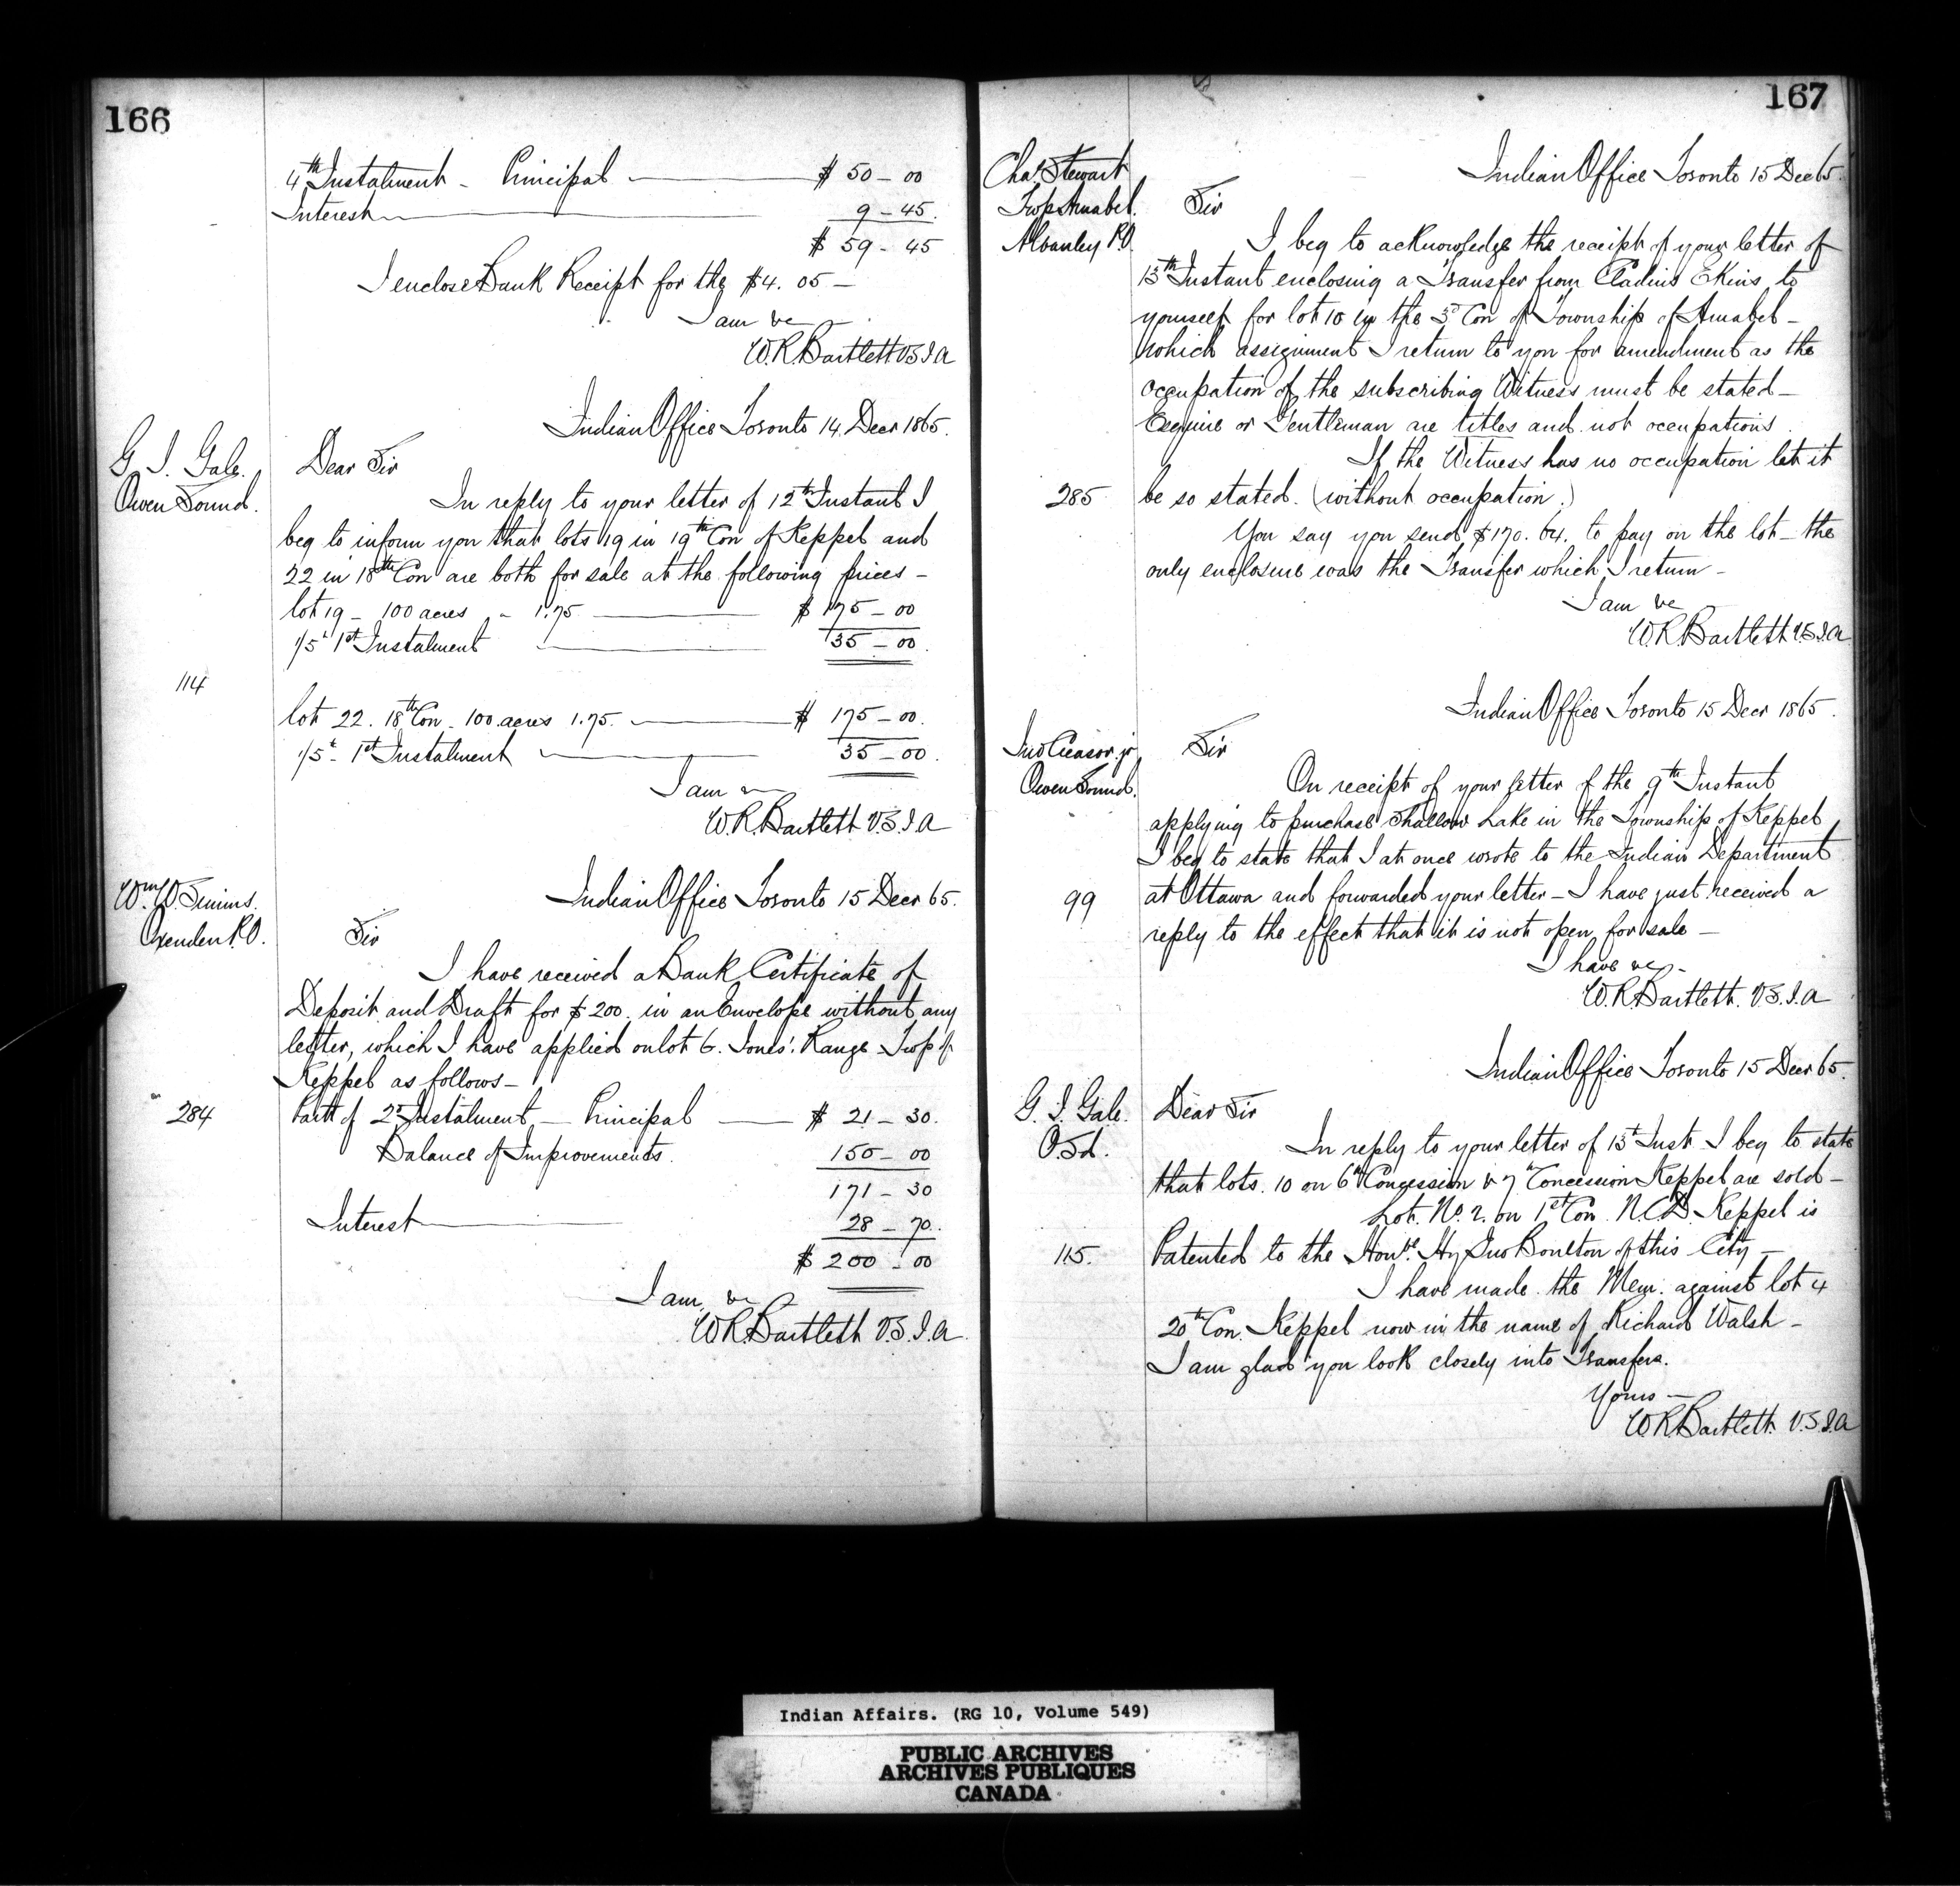 166
4th Instalment - Principal $ 50 - 00
Interest 9 - 45.
$ 59 - 45
I enclose Bank Receipt for the $4. 05 -
I am &c
W.R. Bartlett V.S.I.A
Indian Office Toronto 14 Decr 1865.
G. J. Gale.
Owen Sound.
Dear Sir
In reply to your letter of 12th Instant I
beg to inform you that lots 19 in 19th Con of Keppel and
22 in 18th Con are both for sale at the following prices -
lot 19 - 100 acres - 1.75 $ 175 - 00
1/5t 1st Instalment 35 - 00.
114
lot 22. 18th Con - 100 acres 1.75. $ 175 - 00.
1/5t 1st Instalment 35 - 00.
I am
W.R. Bartlett V.S.I.A
Indian Office Toronto 15 Decr 65.
Wm W. Simms.
Oxenden P.O.
Sir
I have received a Bank Certificate of
Deposit and Draft for $200. in an Envelope without any
letter, which I have applied on lot 6. Jones'. Range Twp of
Keppel as follows -
284
Part of 2d Instalment - Principal $ 21 - 30.
Balance of Improvements. 150 - 00
171 - 30
Interest 28 - 70.
$ 200 - 00
I am, &c
W.R. Bartlett V.S.I.A
167
Indian Office Toronto 15 Dec 65.
Chas. Stewart
Twp Amabel.
Alvanley P.O.
Sir
I beg to acknowledge the receipt of your letter of
13th Instant enclosing a Transfer from Cladius Ekins to
yourself for lot 10 in the 3d Con of Township of Amabel -
which assignment I return to you for amendment as the
occupation of the subscribing Witness must be stated -
Esquire or Gentleman are titles and not occupations.
If the Witness has no occupation let it
285
be so stated. (without occupation.)
You say you send $170. 64. to pay on the lot - the
only enclosure was the Transfer which I return -
I am &c
W.R. Bartlett V.S.I.A
Indian Office Toronto 15 Decr 1865.
Jno Creasor jr
Owen Sound.
Sir
On receipt of your letter of the 9th Instant
applying to purchase Shallow Lake in the Township of Keppel
I beg to state that I at once wrote to the Indian Department
99
at Ottawa and forwarded your letter - I have just received a
reply to the effect that it is not open for sale -
I have &c -
W.R. Bartlett. V.S.I.A
Indian Office Toronto 15 Decr 65.
G. J. Gale.
O. Sd.
Dear Sir
In reply to your letter of 13t Inst I beg to state
that lots. 10 on 6th Concession & 7th Concession Keppel are sold -
Lot. No. 2. on 1st Con. N.C.D. Keppel is
115.
Patented to the Honble. Hy Jno Boulton of this City -
I have made the Mem. against lot 4
20th Con. Keppel now in the name of Richard Walsh -
I am glad you look closely into Transfers.
Yours -
W.R. Bartlett. V.S.I.A
Indian Affairs. (RG 10, Volume 549)
PUBLIC ARCHIVES
ARCHIVES PUBLIQUES
CANADA